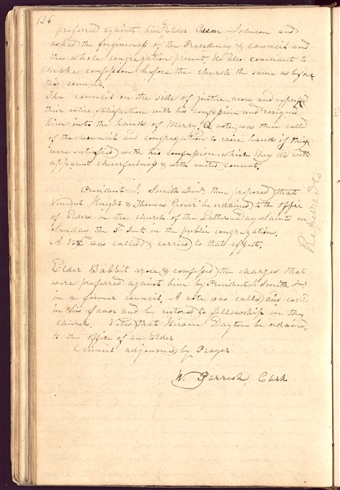 136
prefered against him Elder Johnson and
asked the forgivness of the Presidency & council and
the whole congregation present, he also consented to
make confession before the church the same as before
this council.
The council on the side of justice arose and expressed
their entire satisfaction with his confession and resigned
him into the hands of Mercy. A vote was then called
of the council and congregation to raise hand if they
were satisfied with his confession which they did with
apparent cheerfulness & with united consent.
President J. Smith Junr then proposed that
Vinson Knight & Thomas be ordained to the office
of Elders in the church of the Latter day Saints on
Sunday the in the public congregation.
A vote was called & carried to that effect.
Elder Babbit arose & confessed the charges that
were prefered against him by President J. Smith Jr
in a former council. A vote was called and
in his favor and be restored to fellowship in the
church. Voted that Hiram Dayton be ordained
to the office of an Elder
Council adjourned by Prayer.
W. Parrish Clerk
Recorded